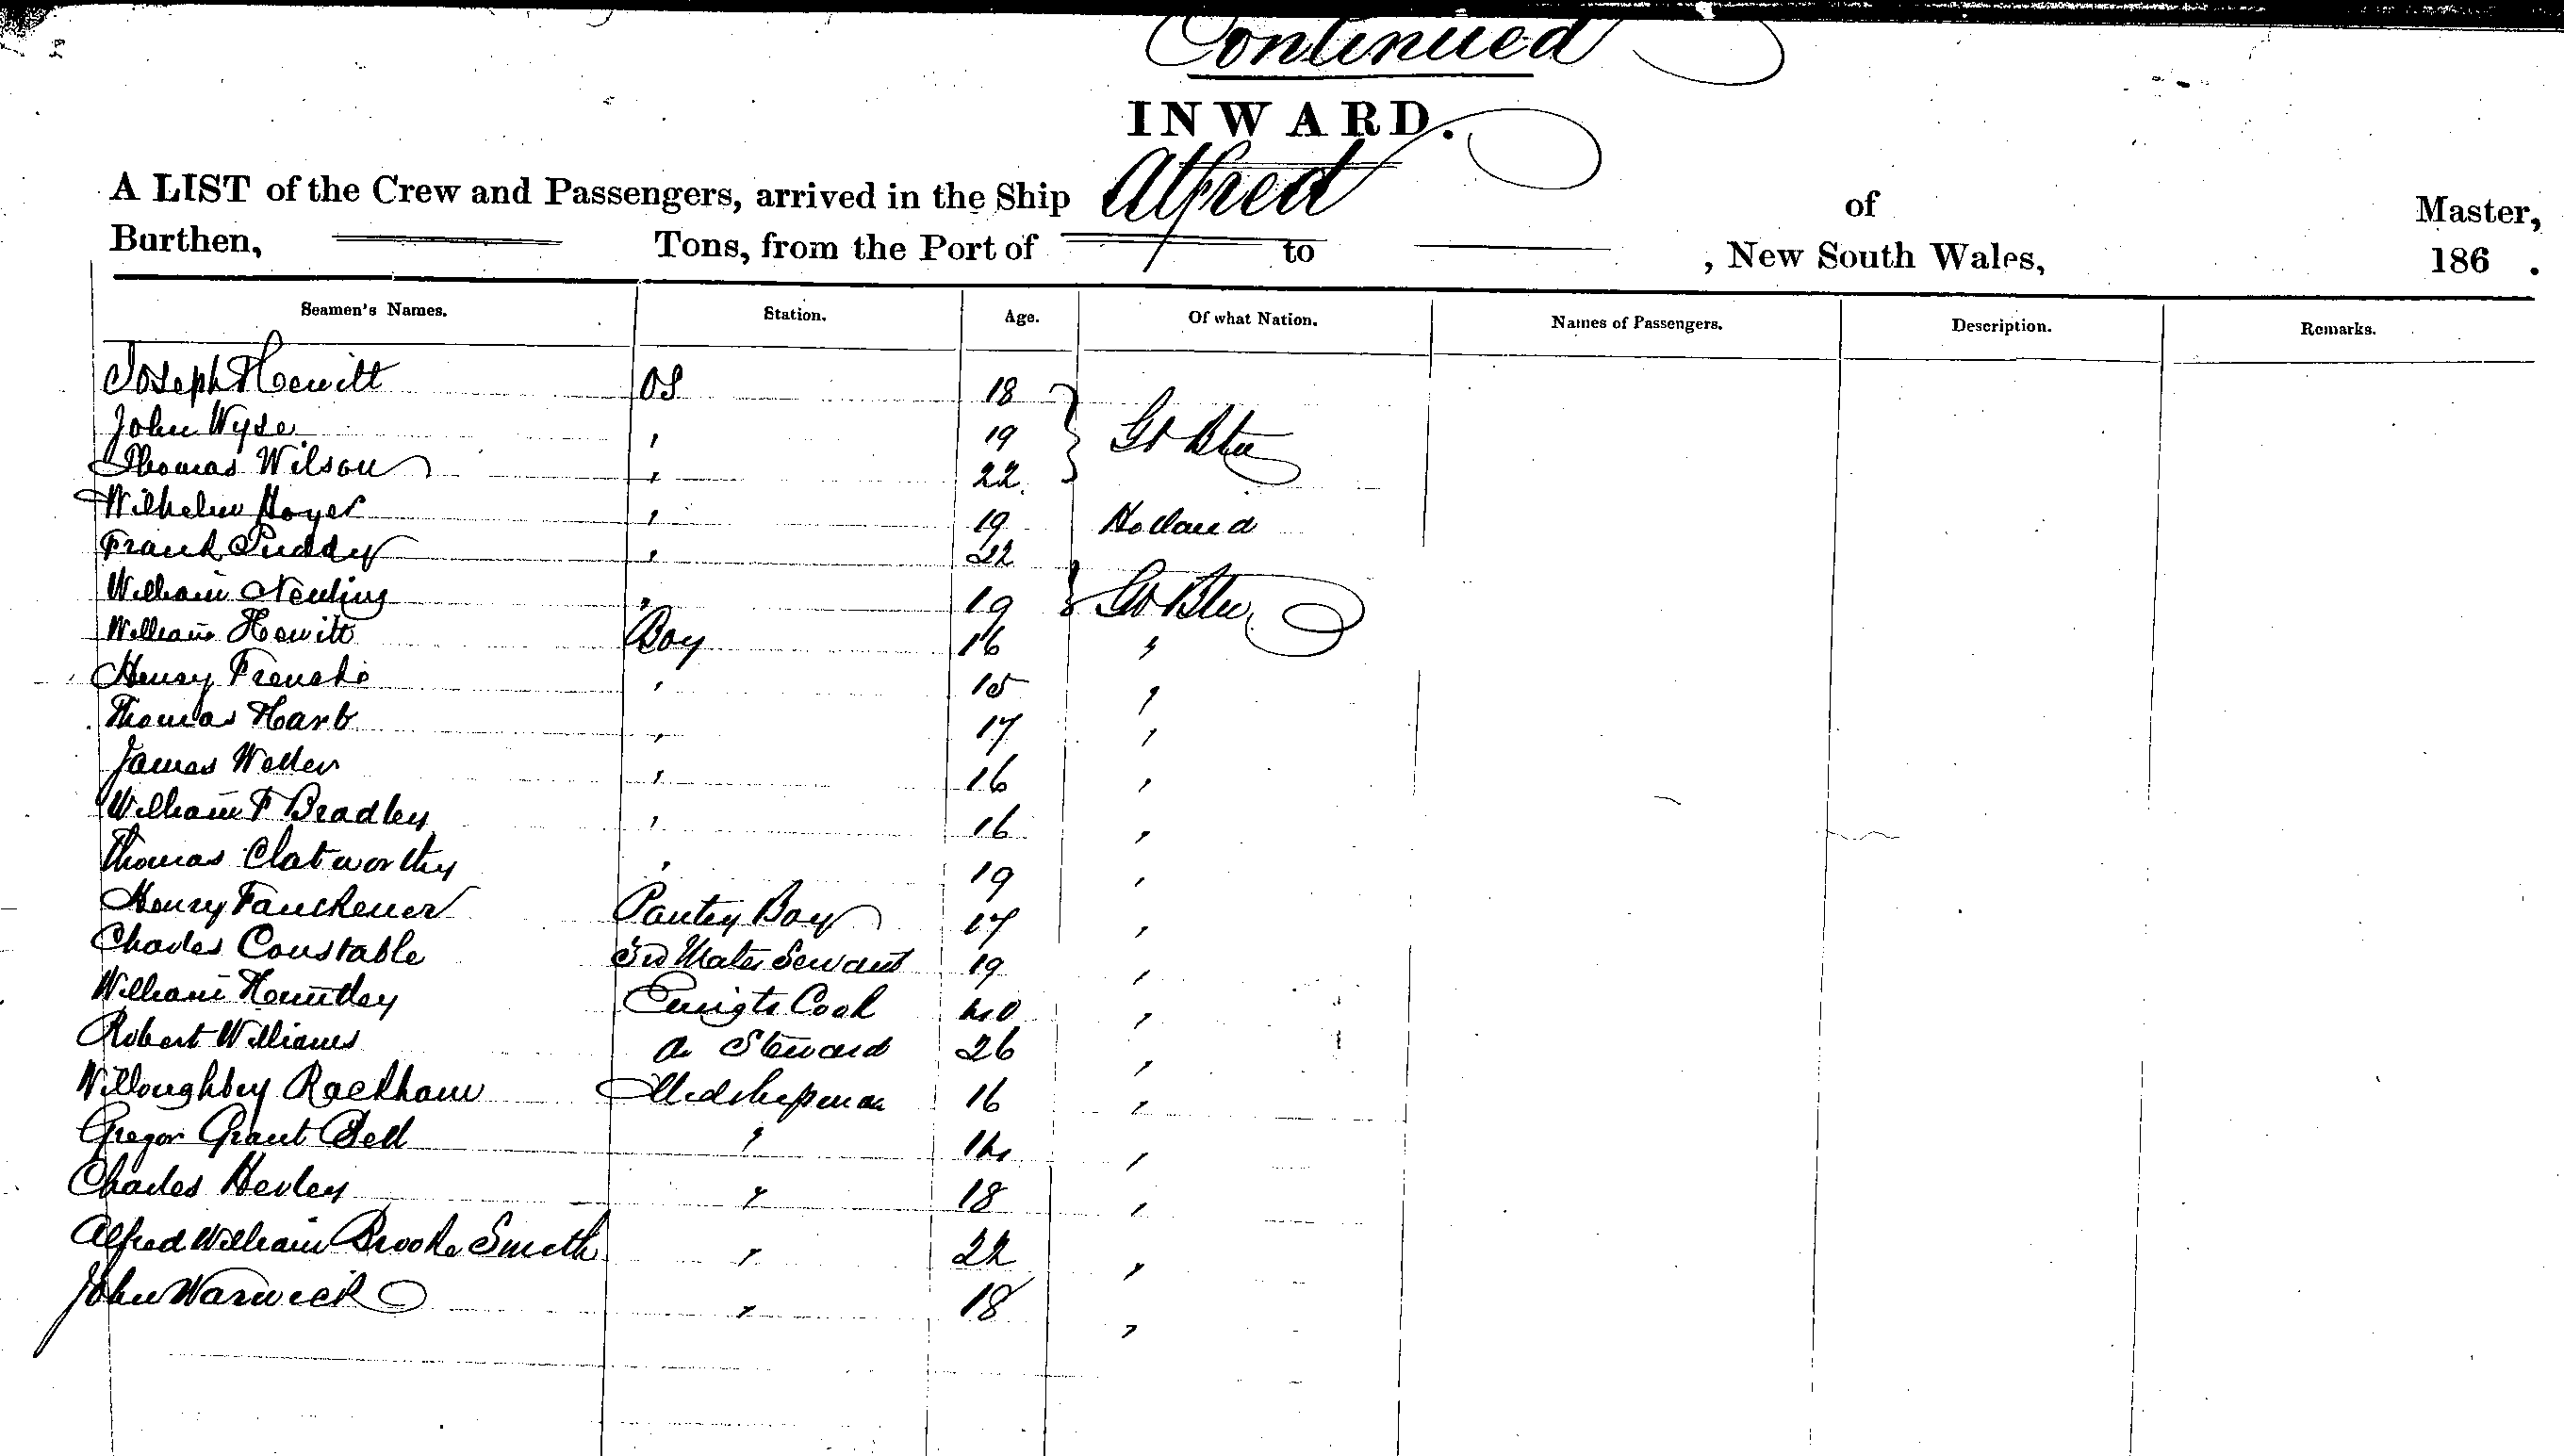 Continued
INWARD.
A LIST of the Crew and Passengers, arrived in the Ship Alfred of Master,
Burthen, Tons, from the Port of to , New South Wales, 186 .
Seamen's Names. Station. Age. Of what Nation. Names of Passengers. Description. Remarks.
Joseph Hewitt OS 18
John Wyse " 19 Gt Btn
Thomas Wilson " 22
Wilhelm Hoyer " 19 Holland
Frank Puddy " 22
William Neuling " 19 Gt Btn
William Hewitt Boy 16 "
Henry " 15 "
Thomas Harb " 17 "
James Weller " 16 "
William F Bradley " 16 "
Thomas Clatworthy " 19 "
Henry Fauckener Pantry Boy 17 "
Charles Constable 3rd Mates Servant 19 "
William Huntley Emigts Cook 40 "
Robert Williams Do Steward 26 "
Willoughby Rackham Midshipman 16 "
Gregor Grant Bell " 14 "
Charles Henley " 18 "
Alfred William Brooke Smith " 22 "
John Warwick " 18 "